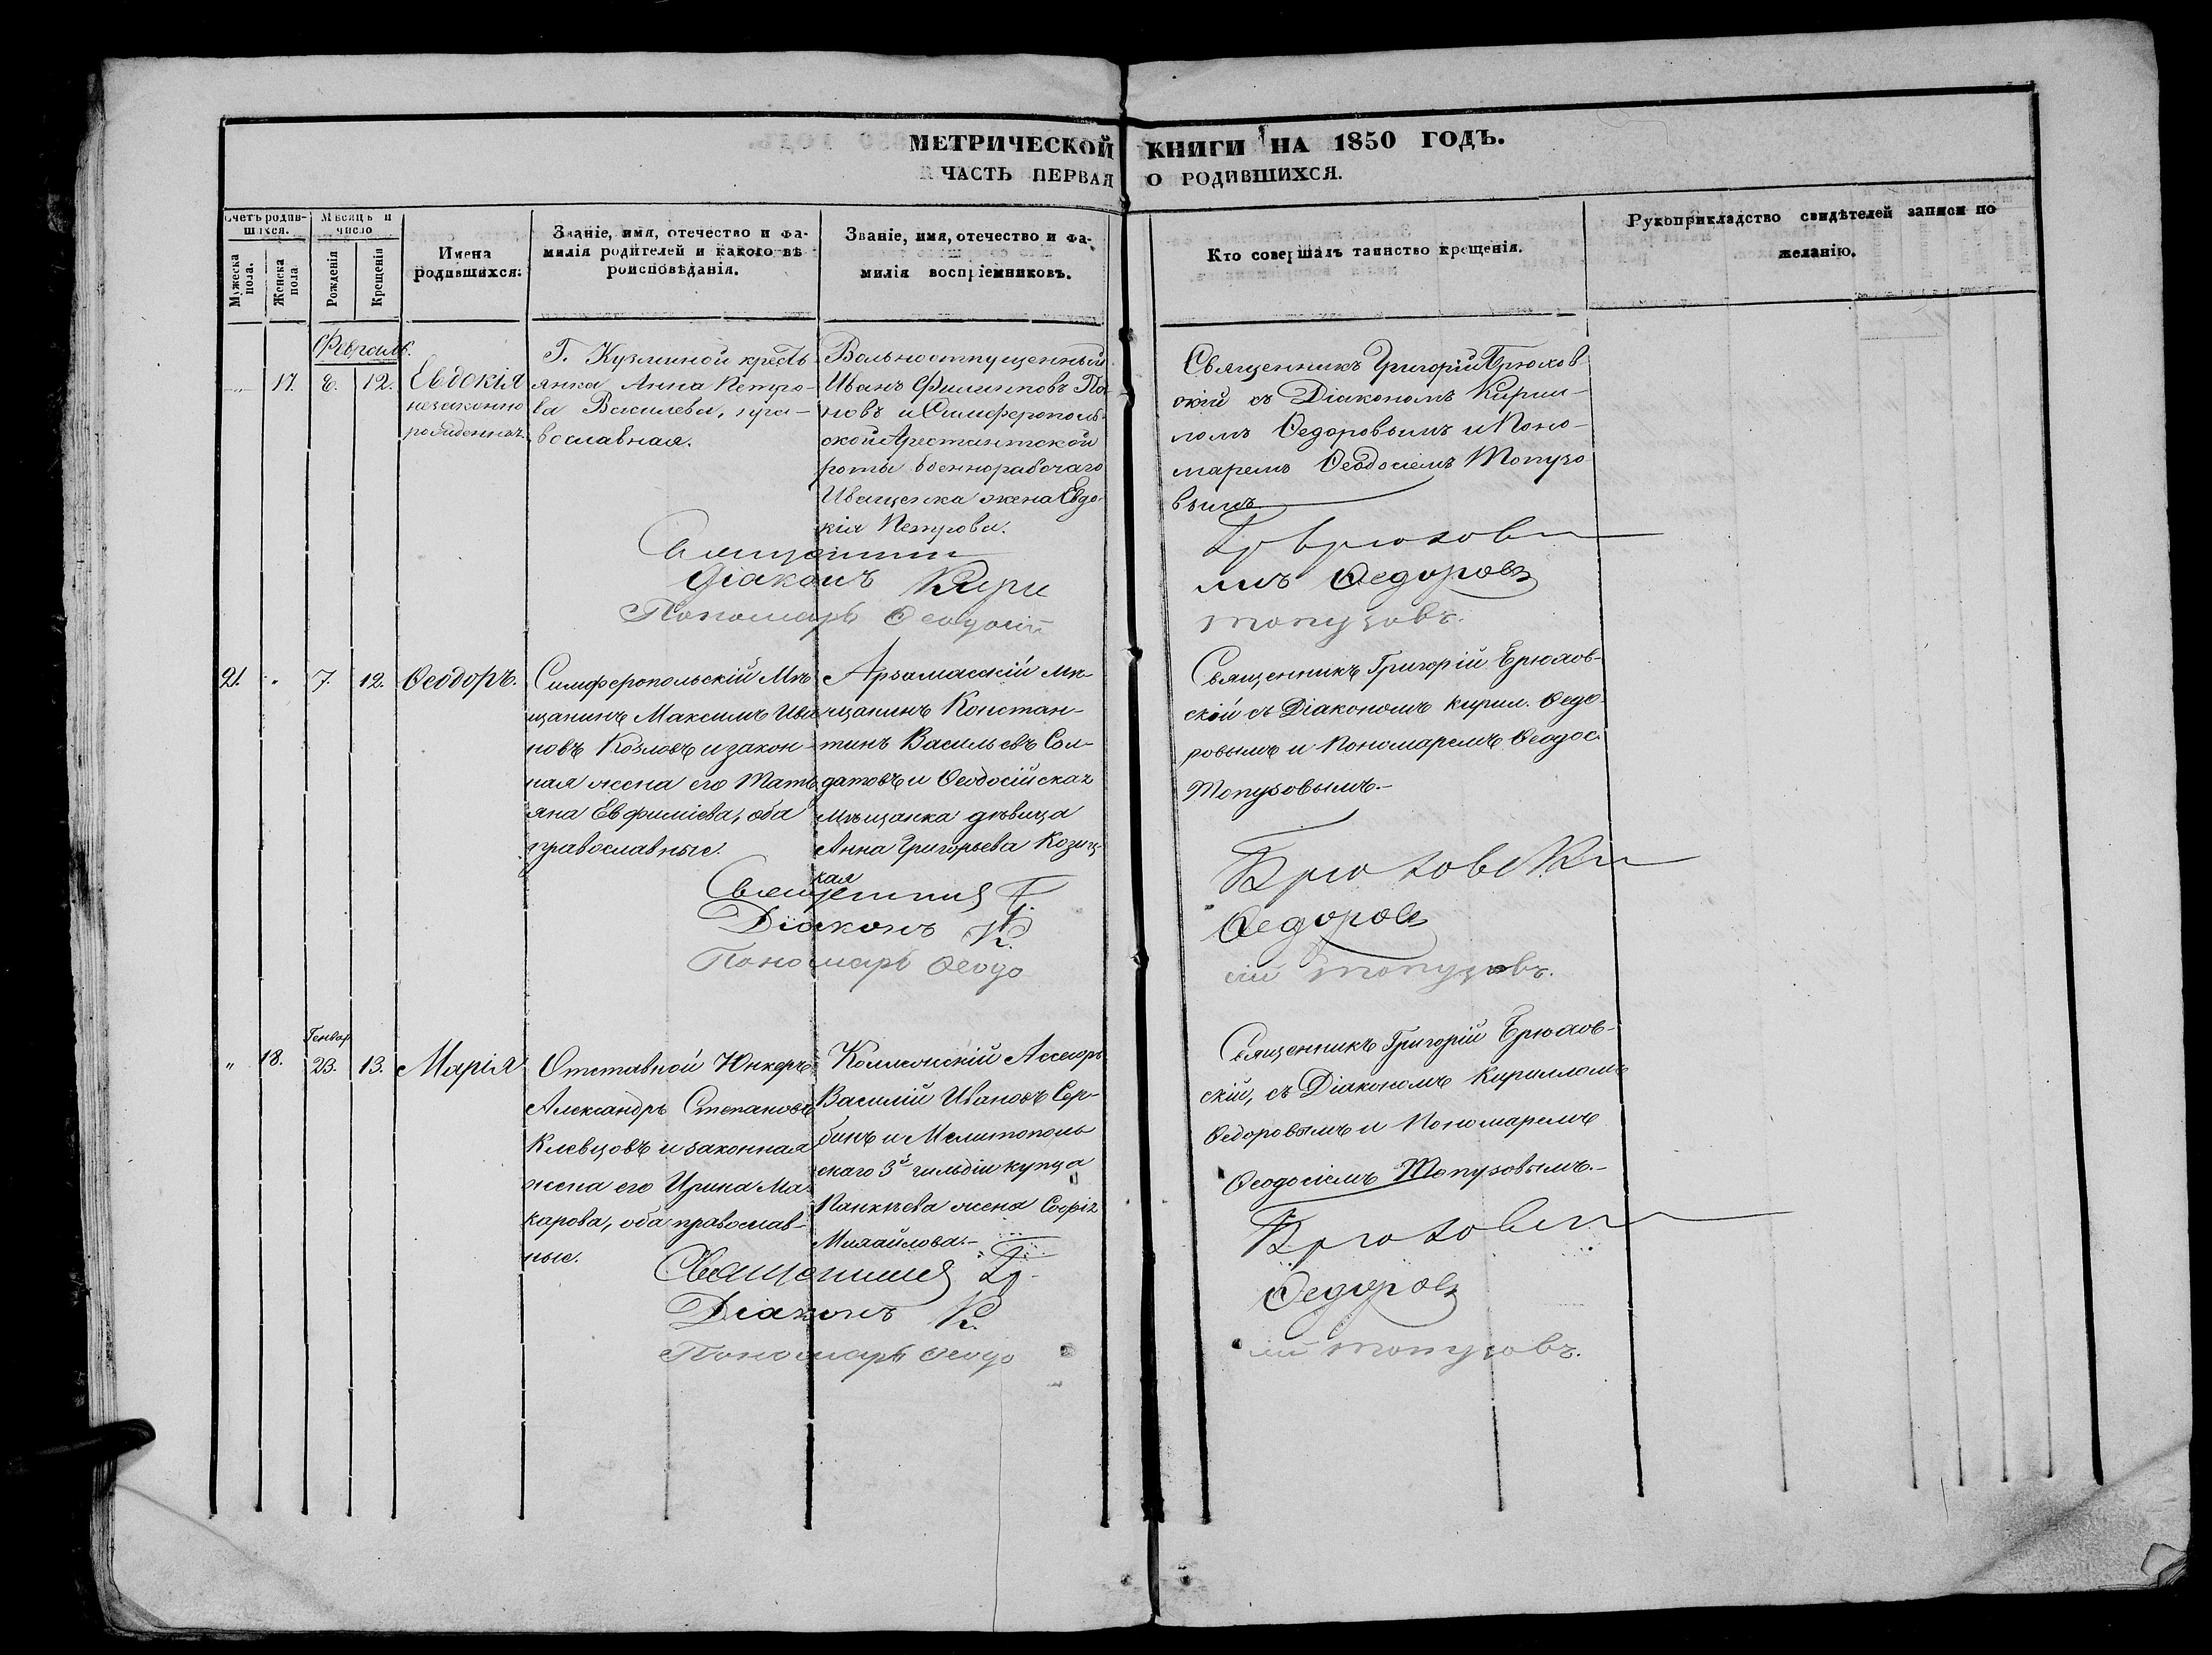 МЕТРИЧЕСКОЙ КНИГИ НА 1850 ГОДЪ.
ЧАСТЬ ПЕРВАЯ О РОДИВШИХСЯ.
Счетъ родившихся.
Мужеска пола.
Женска пола.
Мѣсяцъ и число
Рожденія
Крещенія
Имена
родившихся.
Званіе, имя, отечество и фа-
милія родителей и какого вѣ-
роисповѣданія.
Званіе, имя, отечество и фа-
милія воспріемниковъ.
Кто совершалъ таинство крещенія.
Рукоприкладство свидѣтелей записи по
желанію.
Февраль.
17. 12.
Евдокія
незаконно
рожденная.
Г. Кузминой кресть
янка Анна Петро-
ва Василева, пра-
вославная.
Вольноотпущенный
Иванъ Филиповъ По
новъ и Симферополь-
ской Арестантской
роты военнорабочаго
Иващенка жена Евдо-
кія Петрова.
Священникъ Григорій Брюхов
скій съ Діакономъ Кирил-
ломъ Ѳедоровымъ и Поно-
маремъ Ѳеодосіемъ Топузо
вымъ
Священник Гр Брюховск
Діаконъ Кирилъ Ѳедоровъ
Пономарь Ѳеодосій Топузовъ.
21. " 7. 12. Ѳеодоръ.
Симферопольскій Мѣ
щанинъ Максимъ Ива
новъ Козловъ и закон-
ная жена его Тать
яна Евфиміева, оба
православные.
Арзамасскій мѣ-
щанинъ Констан-
тинъ Васильевъ Сол-
датовъ и Ѳеодосійская
Мѣщанка дѣвица
Анна Григорьева Козиц
кая
Священникъ Григорій Брюхов-
скій съ Діакономъ Кирил. Ѳедо-
ровымъ и Пономаремъ Ѳеодос.
Топузовымъ.-
Священник Г Брюховскій
Діаконъ К. Ѳедоровъ
Пономарь Ѳеодосій Топузовъ.
Генвар
" 18. 23. 13. Марія
Отставной Юнкеръ
Александръ Степановъ
Клевцовъ и законная
жена его Ирина Ма-
карова, оба православ-
ные.
Коллежскій Ассесоръ
Василій Ивановъ Сер-
бинъ и Мелитополь
скаго 3й гильдіи купца
Панкѣева жена Софія
Михайлова.-
Священникъ Григорій Брюхов-
скій, съ Діакономъ Кирилломъ
Ѳедоровымъ и Пономаремъ
Ѳеодосіемъ Топузовымъ.-
Священник Гр. Брюховск
Діаконъ К. Ѳедоровъ
Пономарь Ѳеодосій Топузовъ.